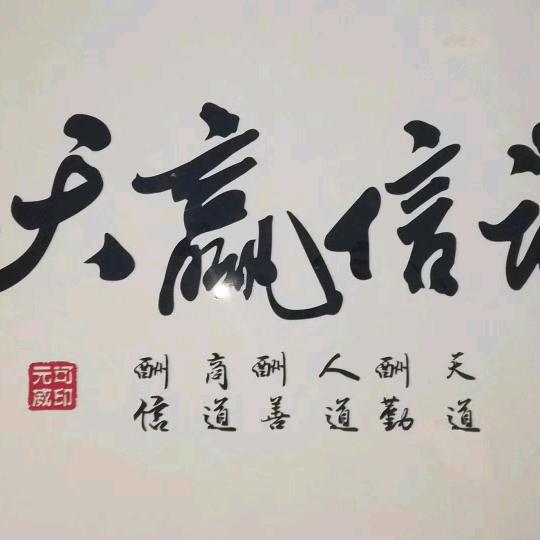 信赢天
天道
酬勤
人道
酬善
商道
酬信